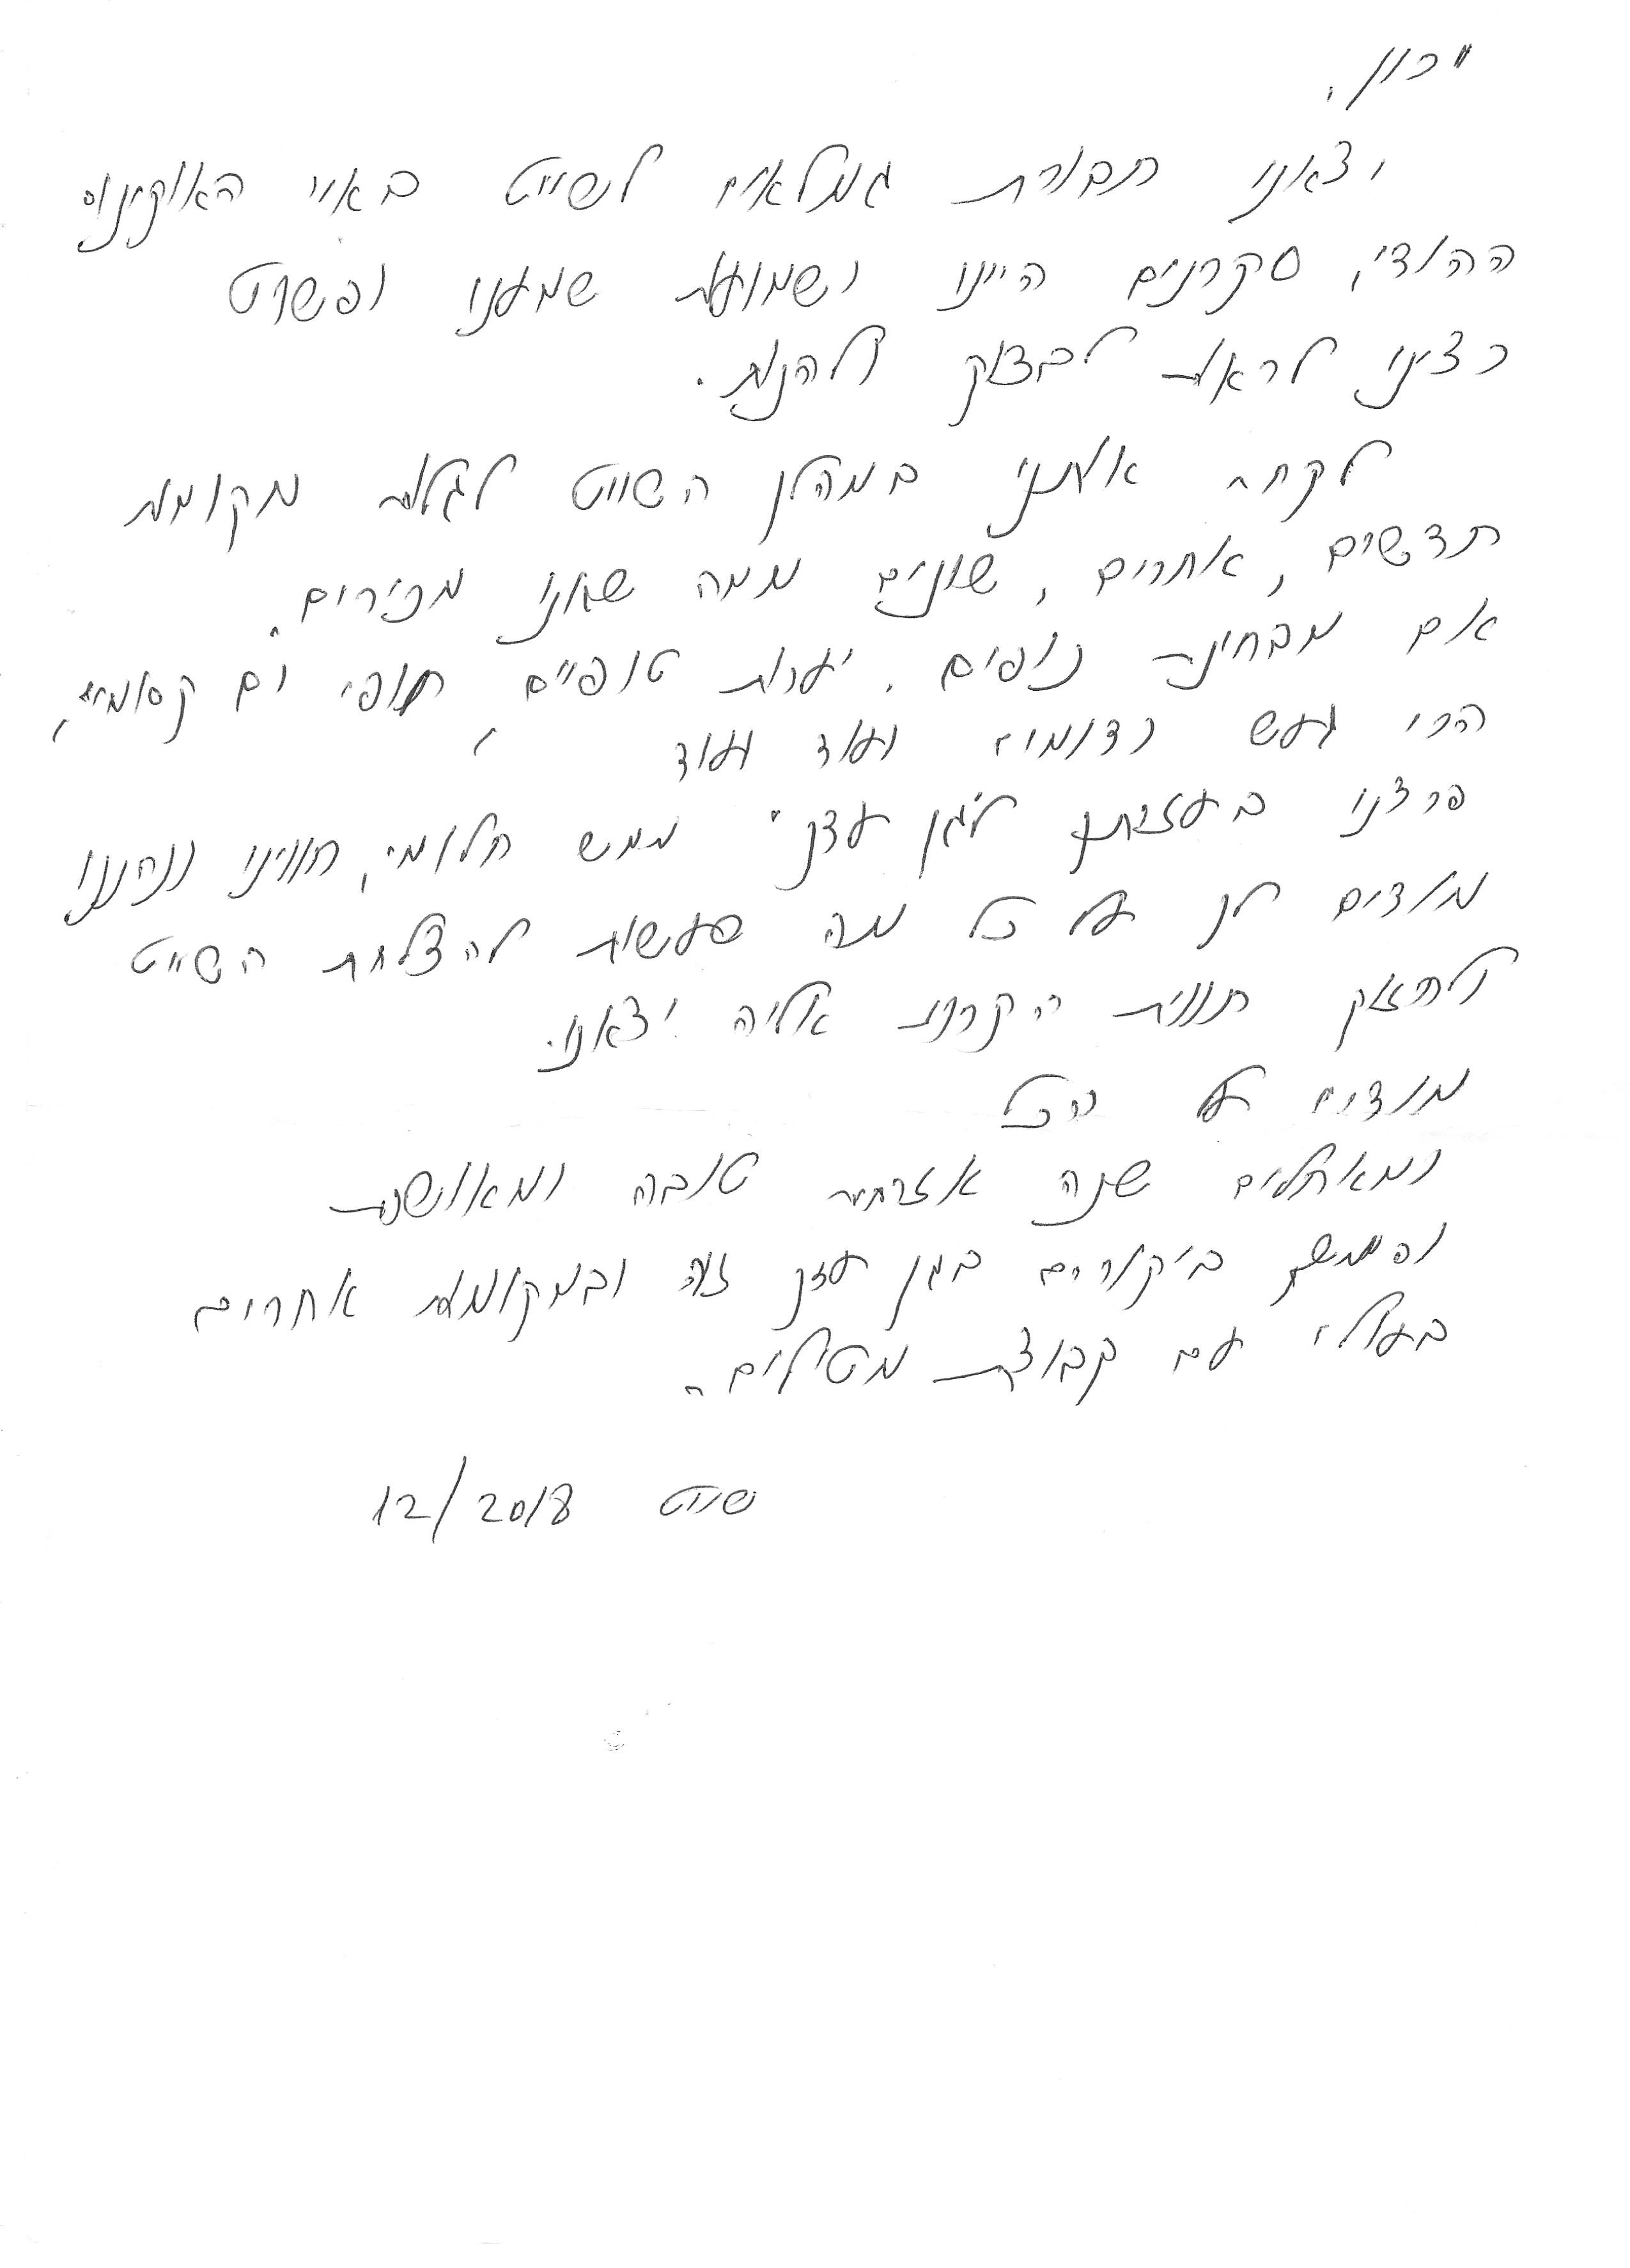 ירון,
יצאנו חבורת גמלאים לשייט באיי האוקינוס
ההודי, סקרנים היינו ושמועות שמענו ופשוט
רצינו לראות לבדוק ולהנות.
לקחת אותנו במהלך השייט לגלות מקומות
חדשים, אחרים, שונים ממה שאנו מכירים.
אם מבחינת נופים, יערות טרופיים, חופי ים קסומים,
הרי געש רדומים ועוד ועוד
פרצנו בעזרתך ל"גן עדן" ממש חלומי, חווינו ונהננו
מודים לך על כל מה שעשית להצלחת השייט
ולחזוק חווית הקרנות אליה יצאנו.
מודים על הכל
ומאחלים שנה אזרחית טובה ומאושרת
והמשך ביקורים בגן עדן זה ובמקומות אחרים
בעולם עם קבוצת מטילים.
שייט 12/2018